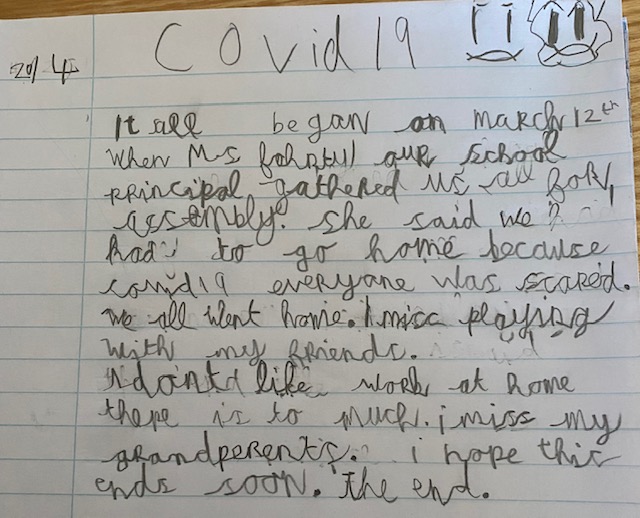 Covid 19
20/4
It all began on March 12th
when Ms our school
principal gathered us all for
assembly. she said we
had to go home because
covid 19 everyone was scared.
we all went home. I miss playing
with my friends.
I dont like work at home
there is to much. i miss my
grandperents. i hope this
ends soon. the end.